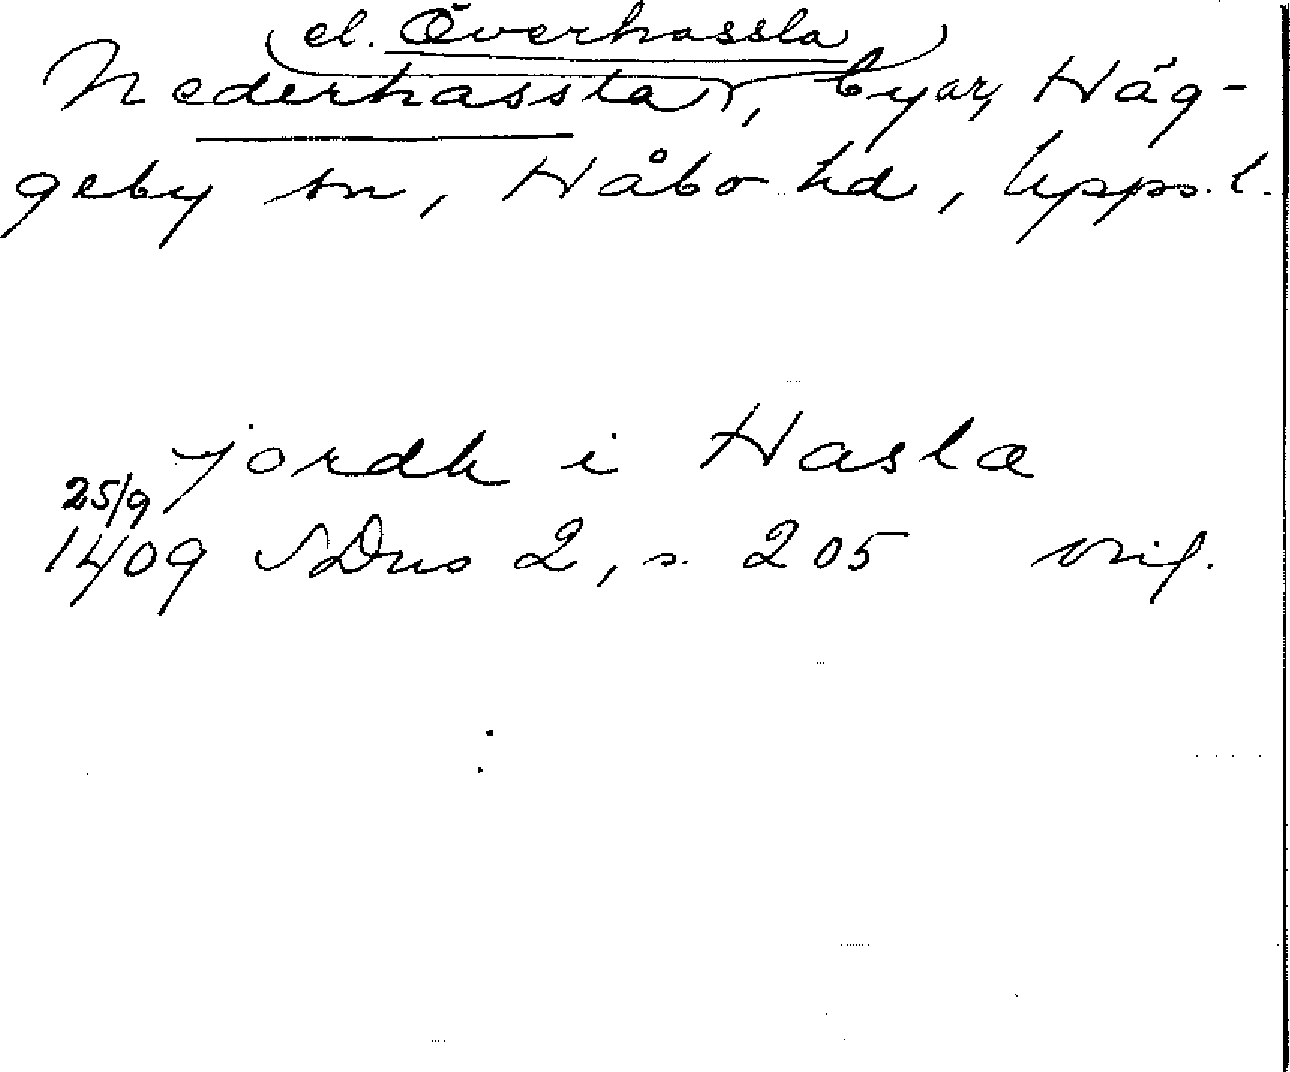 el. Överhassla
Nederhassla, byar, Häg-
geby sn, Håbo hd, Upps. l.
jordh i Hasla
25/9
1409 SDns 2, s. 205 orig.